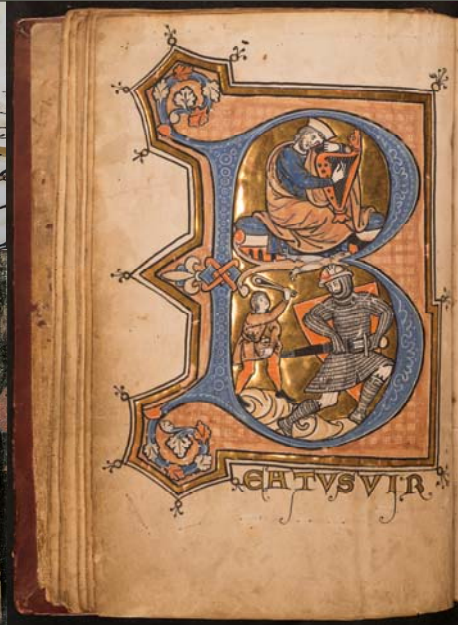 B
EATUS VIR